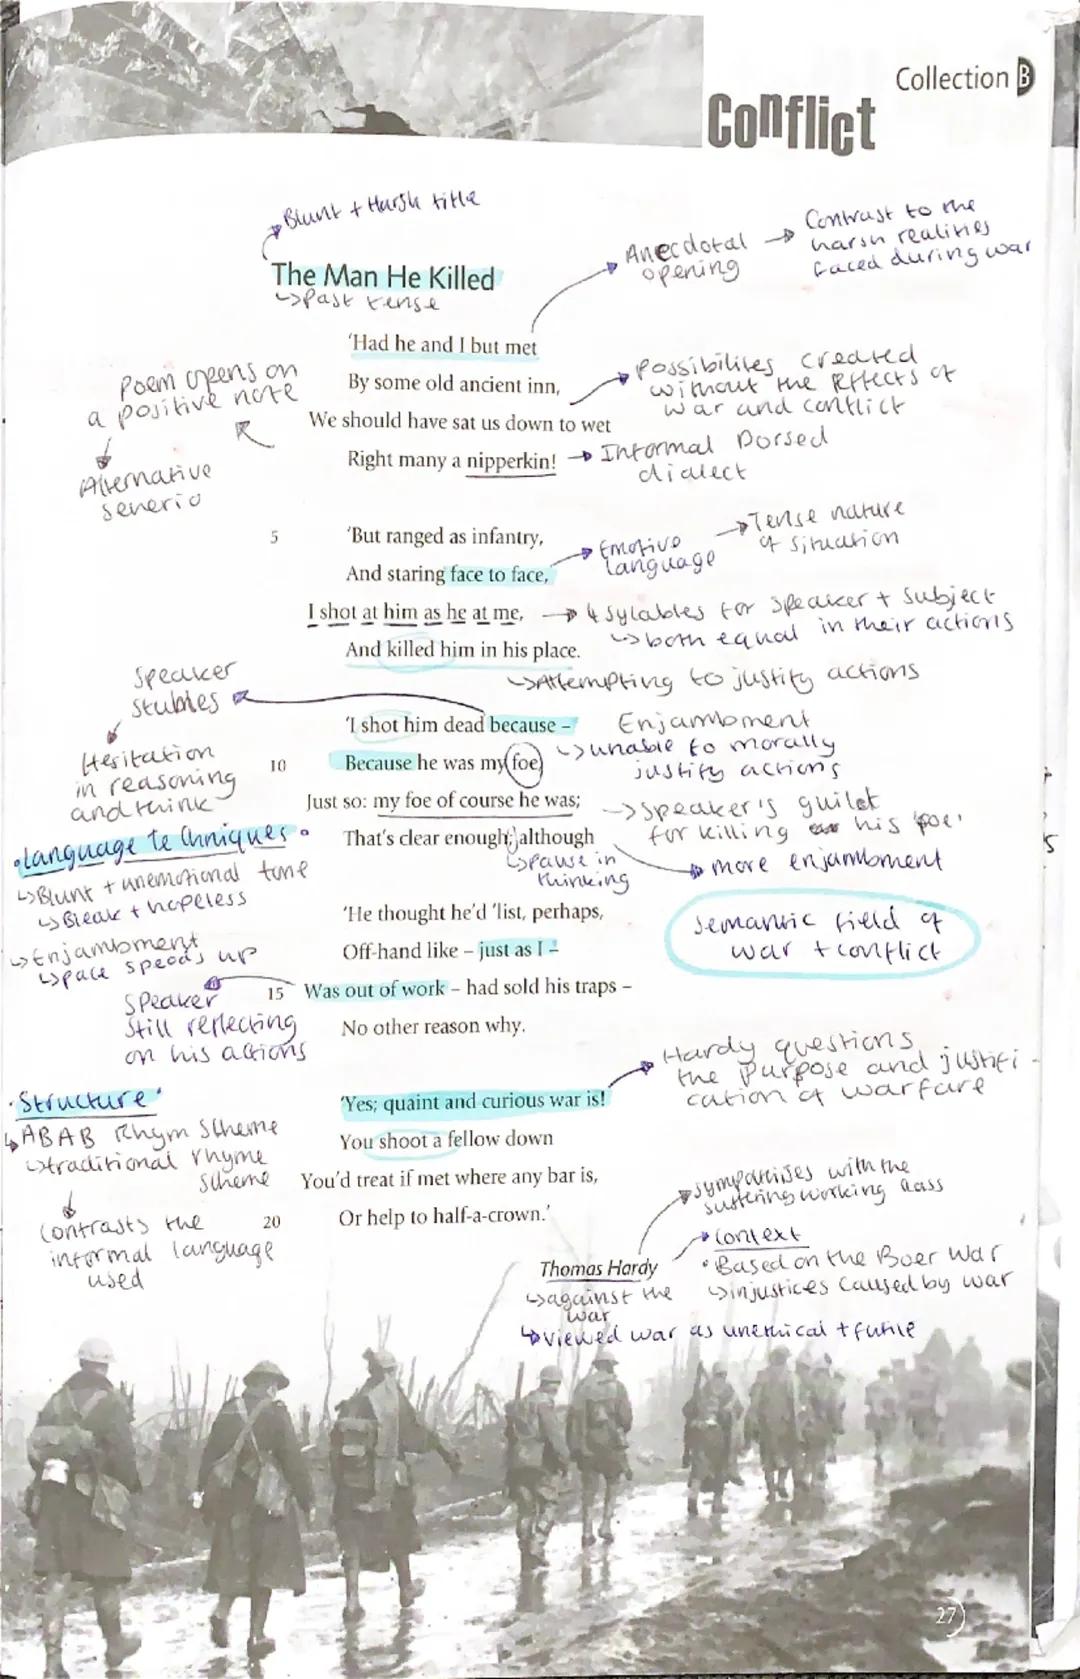 Collection B
Conflict
Blunt + Harsh title
The Man He Killed
↳Past tense
Anecdotal
opening
Contrast to the
harsh realities
faced during war
'Had he and I but met
By some old ancient inn,
We should have sat us down to wet
Right many a nipperkin!
Poem opens on
a positive note
Alternative
senerio
Possibilites created
without the effects of
war and conflict
Informal Dorsed
dialect
5
'But ranged as infantry,
And staring face to face,
I shot at him as he at me,
And killed him in his place.
Emotive
language
Tense nature
of situation
4 sylables for speaker + subject
↳both equal in their actions
↳Attempting to justify actions
Speaker
stubles
Hesitation
in reasoning
and think
'I shot him dead because –
10
Because he was my foe,
Just so: my foe of course he was;
That's clear enough; although
Enjambment
↳unable to morally
justify actions
→speaker's guilt
for killing his 'foe'
↳pause in
thinking
more enjambment
•language techniques•
↳Blunt + unemotional tone
↳Bleak + hopeless
↳Enjambment
↳pace speeds up
Speaker
still reflecting
on his actions
'He thought he'd 'list, perhaps,
Off-hand like – just as I –
15
Was out of work – had sold his traps –
No other reason why.
semantic field of
war + conflict
'Yes; quaint and curious war is!
You shoot a fellow down
You'd treat if met where any bar is,
20
Or help to half-a-crown.'
Hardy questions
the purpose and justifi-
cation of warfare
•Structure•
↳ABAB Rhym Scheme
↳traditional rhyme
scheme
contrasts the
informal language
used
Thomas Hardy
↳against the
war
↳viewed war as unethical + futile
sympathises with the
suffering working class
Context
•Based on the Boer War
↳injustices caused by war
27